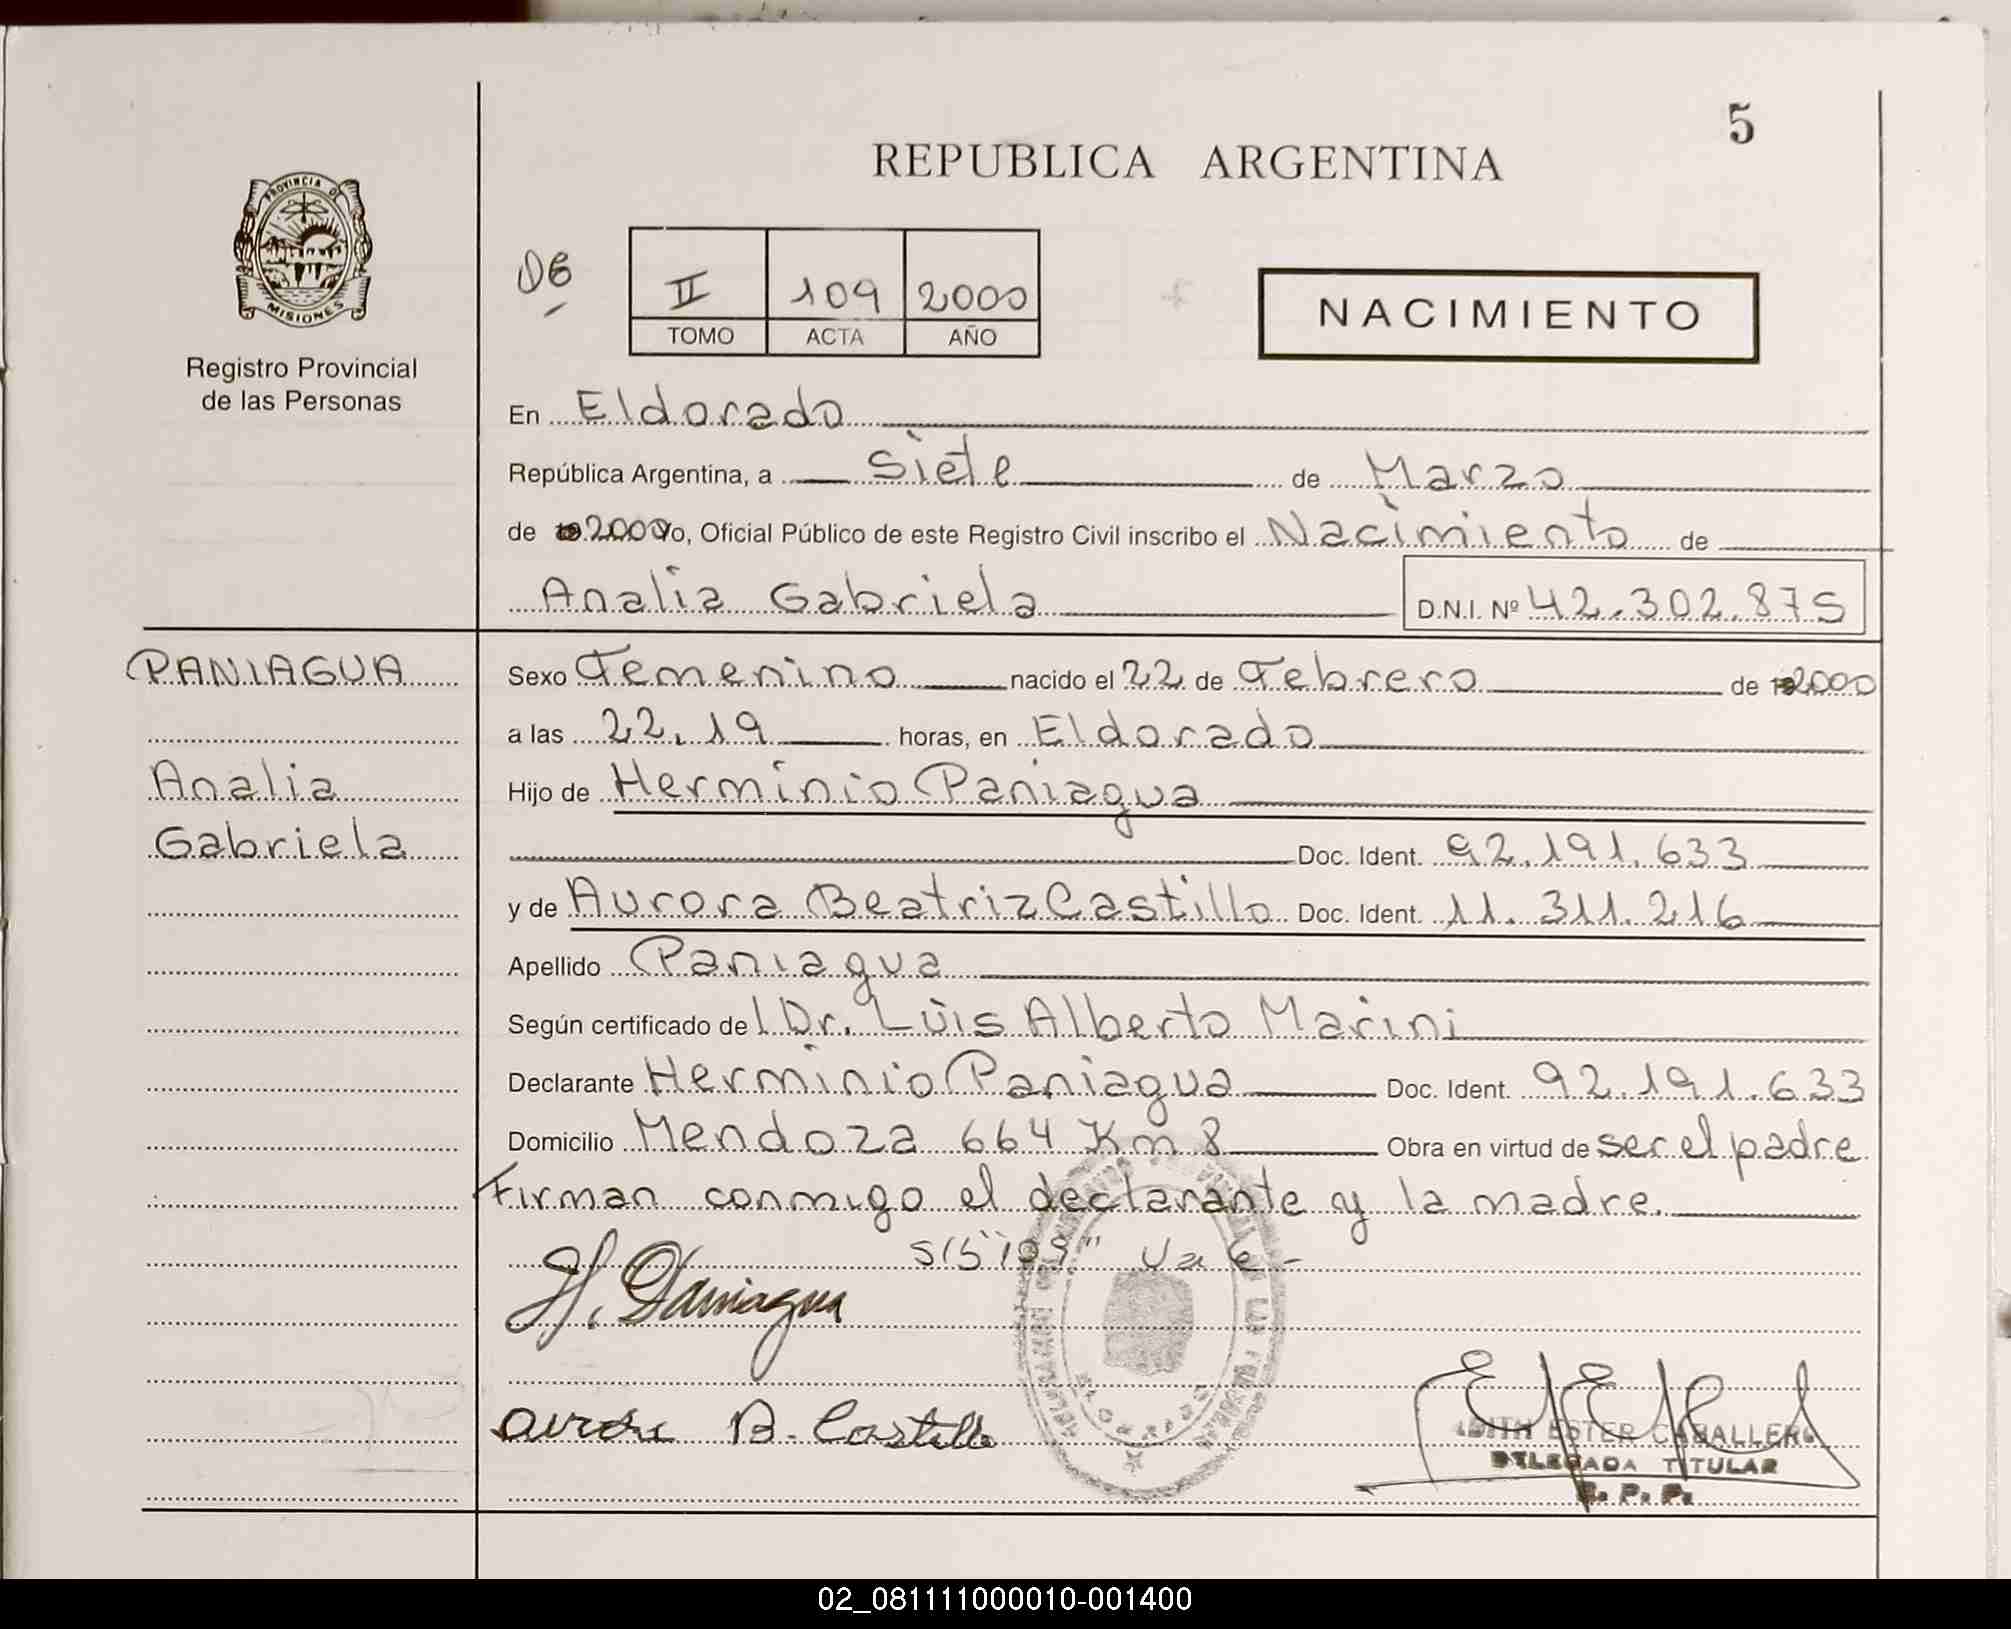 5
REPUBLICA ARGENTINA
PROVINCIA D
MISIONES
Registro Provincial
de las Personas
II 109 2000
TOMO ACTA AÑO
NACIMIENTO
En Eldorado
República Argentina, a siete de Marzo
de 2000 Yo, Oficial Público de este Registro Civil inscribo el Nacimiento de
Analia Gabriela D.N.I. Nº 42.302.875
PANIAGUA
Analia
Gabriela
Sexo Femenino nacido el 22 de Febrero de 2000
a las 22.19 horas, en Eldorado
Hijo de Herminio Paniagua
Doc. Ident. 92.191.633
y de Aurora Beatriz Castillo Doc. Ident. 11.311.216
Apellido Paniagua
Según certificado del Dr. Luis Alberto Marini
Declarante Herminio Paniagua Doc. Ident. 92.191.633
Domicilio Mendoza 664 Km 8 Obra en virtud de ser el padre
Firman conmigo el declarante y la madre.
H. Paniagua
B. Castillo
ESTER CABALLERO
DELEGADA TITULAR
R. P. P.
02_081111000010-001400